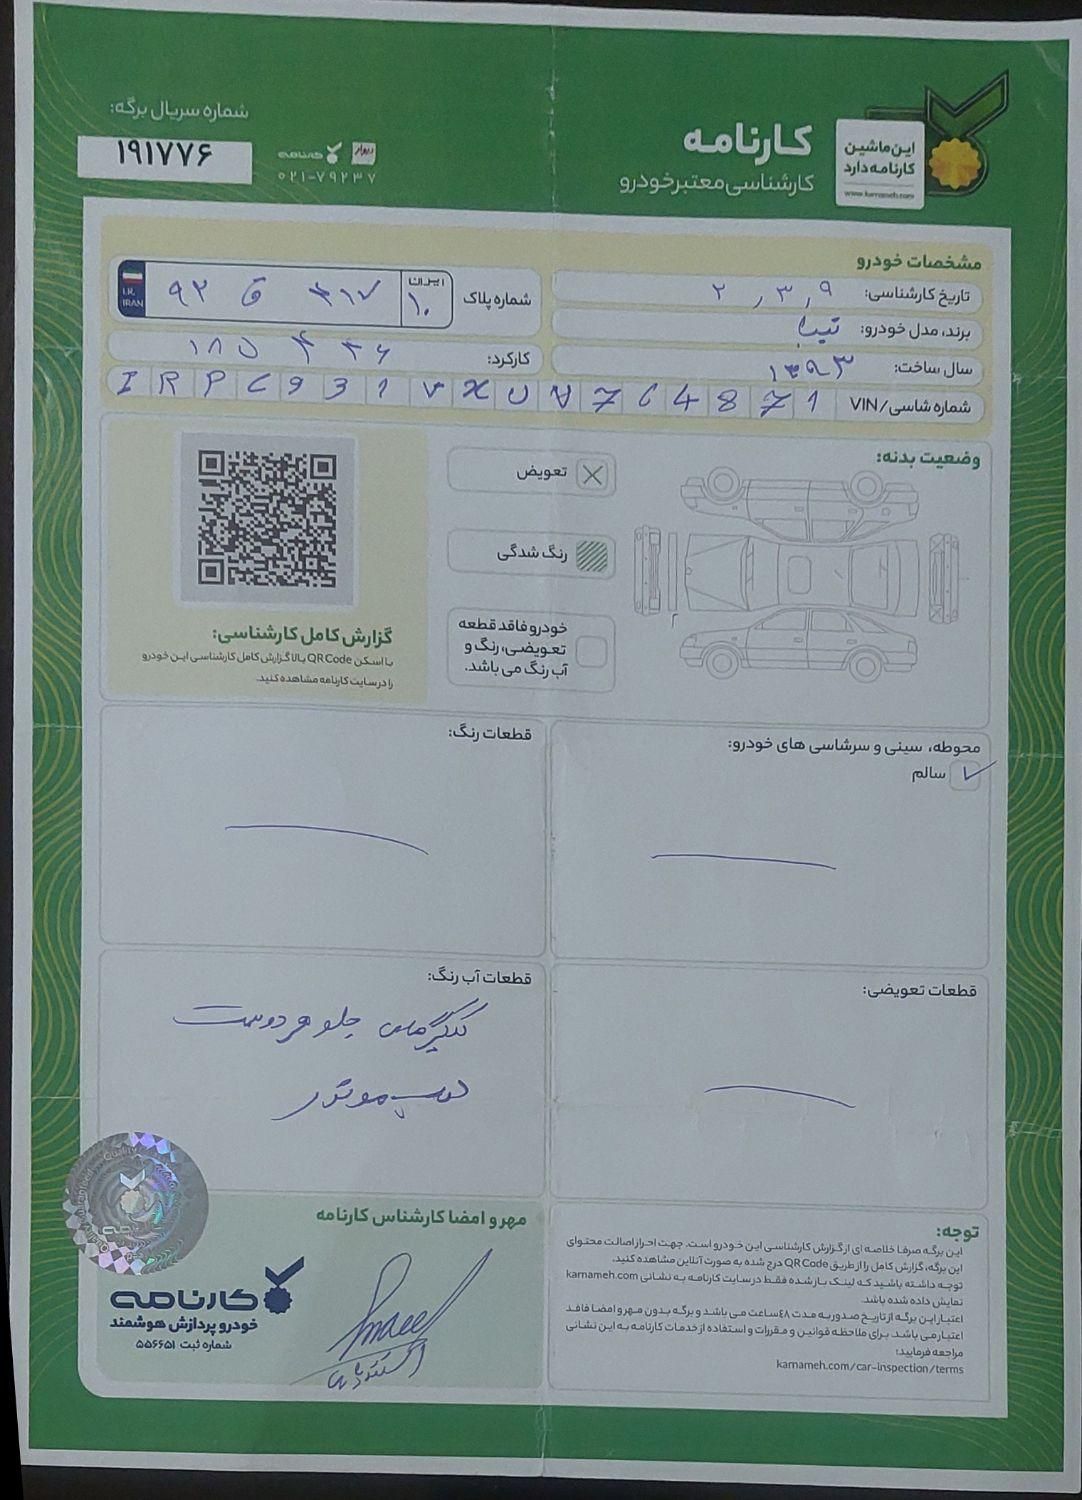 شماره سریال برگه:
۱۹۱۷۷۶
دیوار کارنامه
۰۲۱-۷۹۲۳۷
کارنامه
کارشناسی معتبر خودرو
این ماشین
کارنامه دارد
www.karnameh.com
مشخصات خودرو
تاریخ کارشناسی: ۲,۳,۹
برند، مدل خودرو: تیبا
سال ساخت: ۱۳۹۳
شماره پلاک
I.R.
IRAN
۹۲ ق ۴۱۷
ایران
۱۰
کارکرد: ۱۸۵۴۳۶
شماره شاسی/VIN
وضعیت بدنه:
تعویض
رنگ شدگی
خودرو فاقد قطعه
تعویضی، رنگ و
آب رنگ می باشد.
گزارش کامل کارشناسی:
با اسکن QR Code بالا گزارش کامل کارشناسی این خودرو
را در سایت کارنامه مشاهده کنید.
محوطه، سینی و سرشاسی های خودرو:
سالم
قطعات رنگ:
قطعات تعویضی:
قطعات آب رنگ:
گلگیرهای جلو هر دو سمت
درب موتور
توجه:
این برگه صرفا خلاصه ای از گزارش کارشناسی این خودرو است. جهت احراز اصالت محتوای
این برگه، گزارش کامل را از طریق QR Code درج شده به صورت آنلاین مشاهده کنید.
توجه داشته باشید که لینک باز شده فقط در سایت کارنامه به نشانی karnameh.com
نمایش داده شده باشد.
اعتبار این برگه از تاریخ صدور به مدت ۴۸ ساعت می باشد و برگه بدون مهر و امضا فاقد
اعتبار می باشد. برای ملاحظه قوانین و مقررات و استفاده از خدمات کارنامه به این نشانی
مراجعه فرمایید:
karnameh.com/car-inspection/terms
مهر و امضا کارشناس کارنامه
کارنامه
خودرو پردازش هوشمند
شماره ثبت ۵۵۶۶۵۱